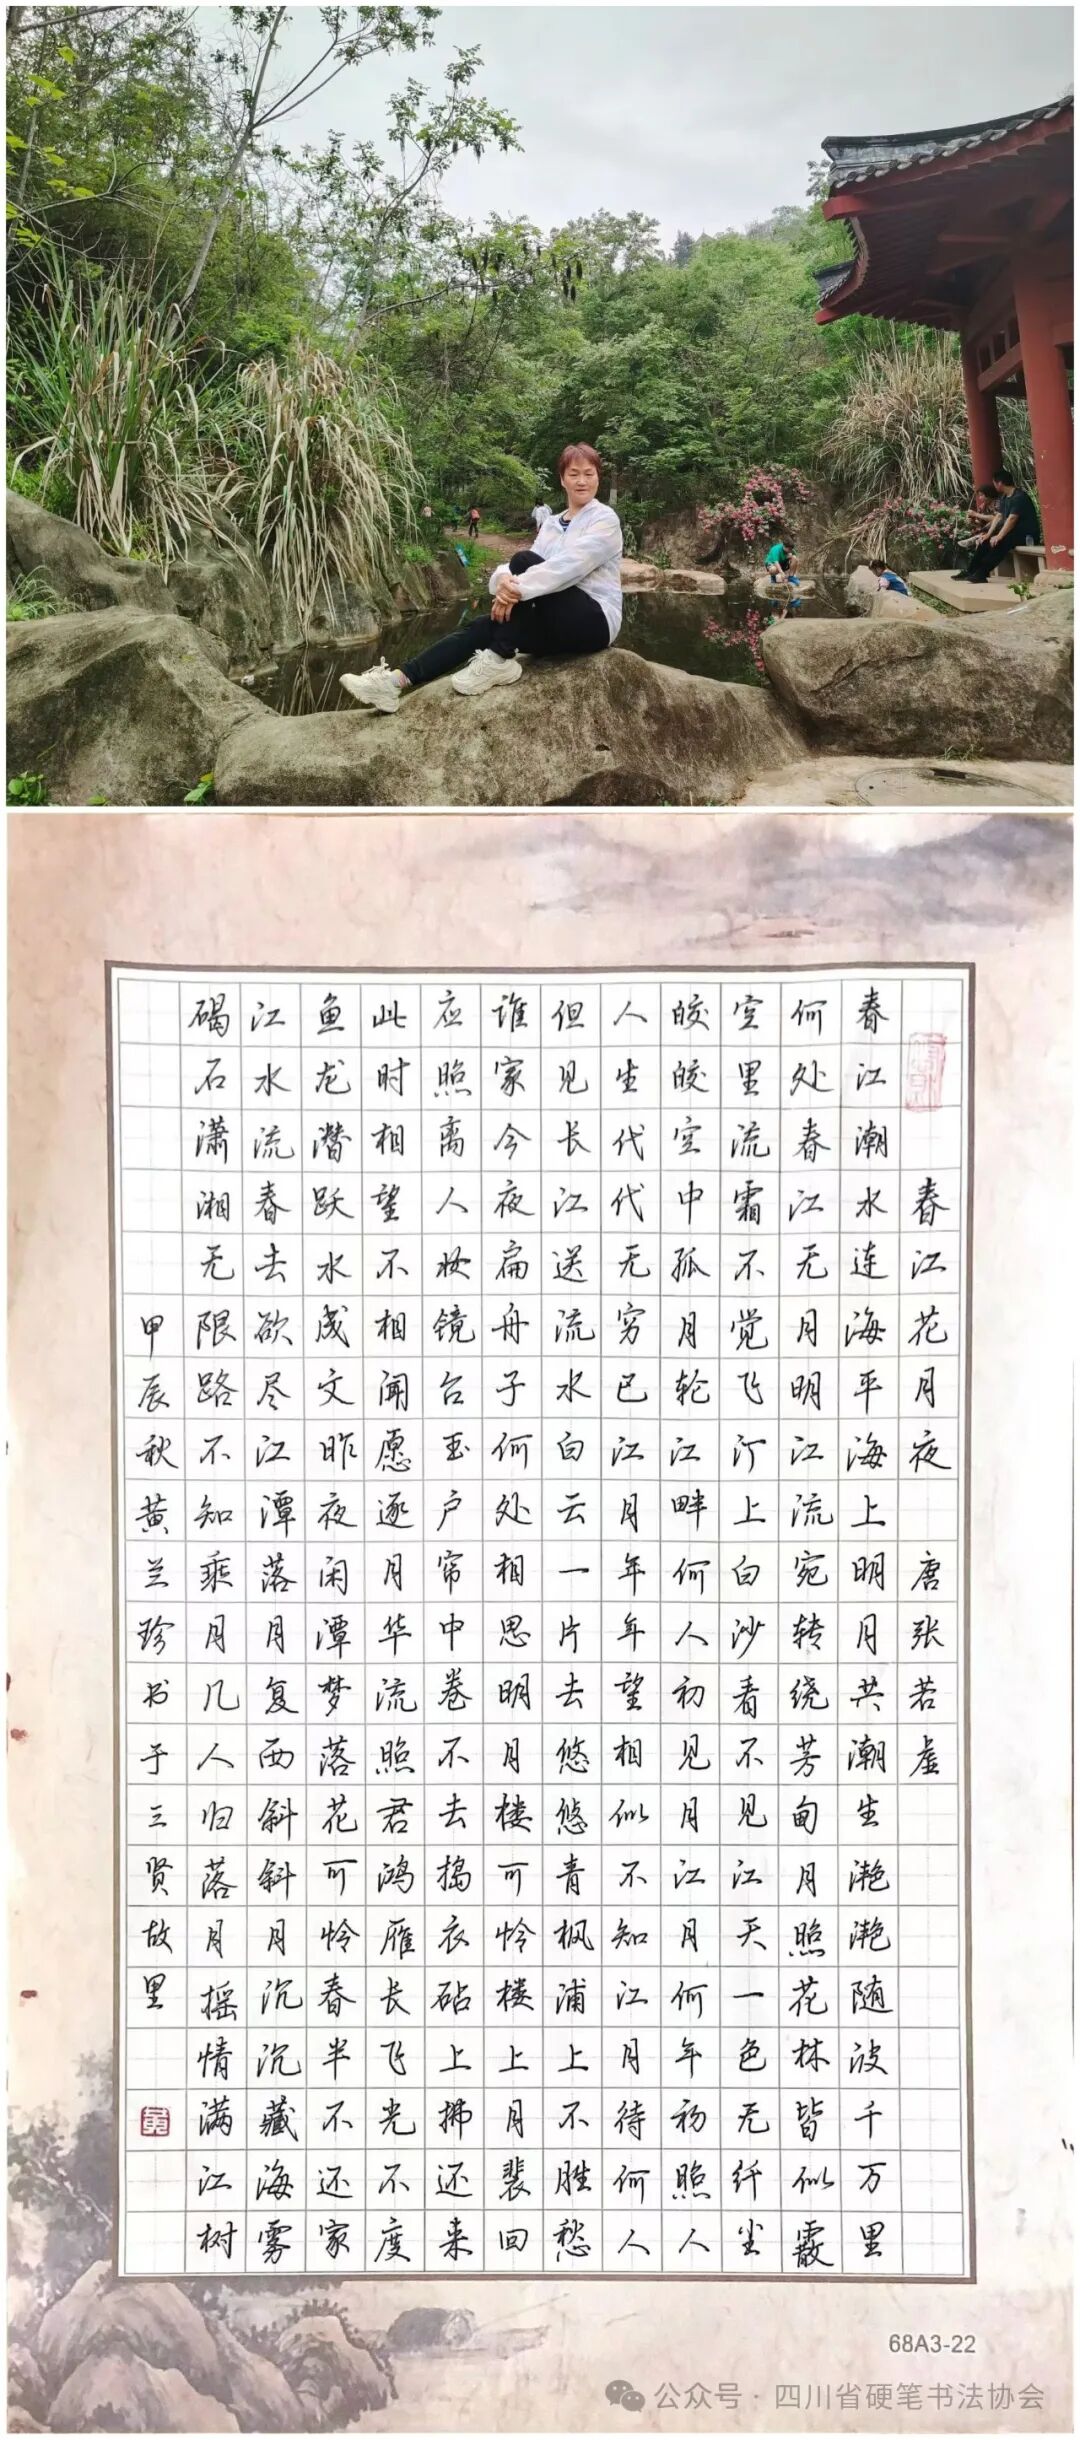 春江花月夜 唐张若虚
春江潮水连海平海上明月共潮生滟滟随波千万里
何处春江无月明江流宛转绕芳甸月照花林皆似霰
空里流霜不觉飞汀上白沙看不见江天一色无纤尘
皎皎空中孤月轮江畔何人初见月江月何年初照人
人生代代无穷已江月年年望相似不知江月待何人
但见长江送流水白云一片去悠悠青枫浦上不胜愁
谁家今夜扁舟子何处相思明月楼可怜楼上月裴回
应照离人妆镜台玉户帘中卷不去捣衣砧上拂还来
此时相望不相闻愿逐月华流照君鸿雁长飞光不度
鱼龙潜跃水成文昨夜闲潭梦落花可怜春半不还家
江水流春去欲尽江潭落月复西斜斜月沉沉藏海雾
碣石潇湘无限路不知乘月几人归落月摇情满江树
甲辰秋黄兰珍书于三贤故里
68A3-22
公众号·四川省硬笔书法协会